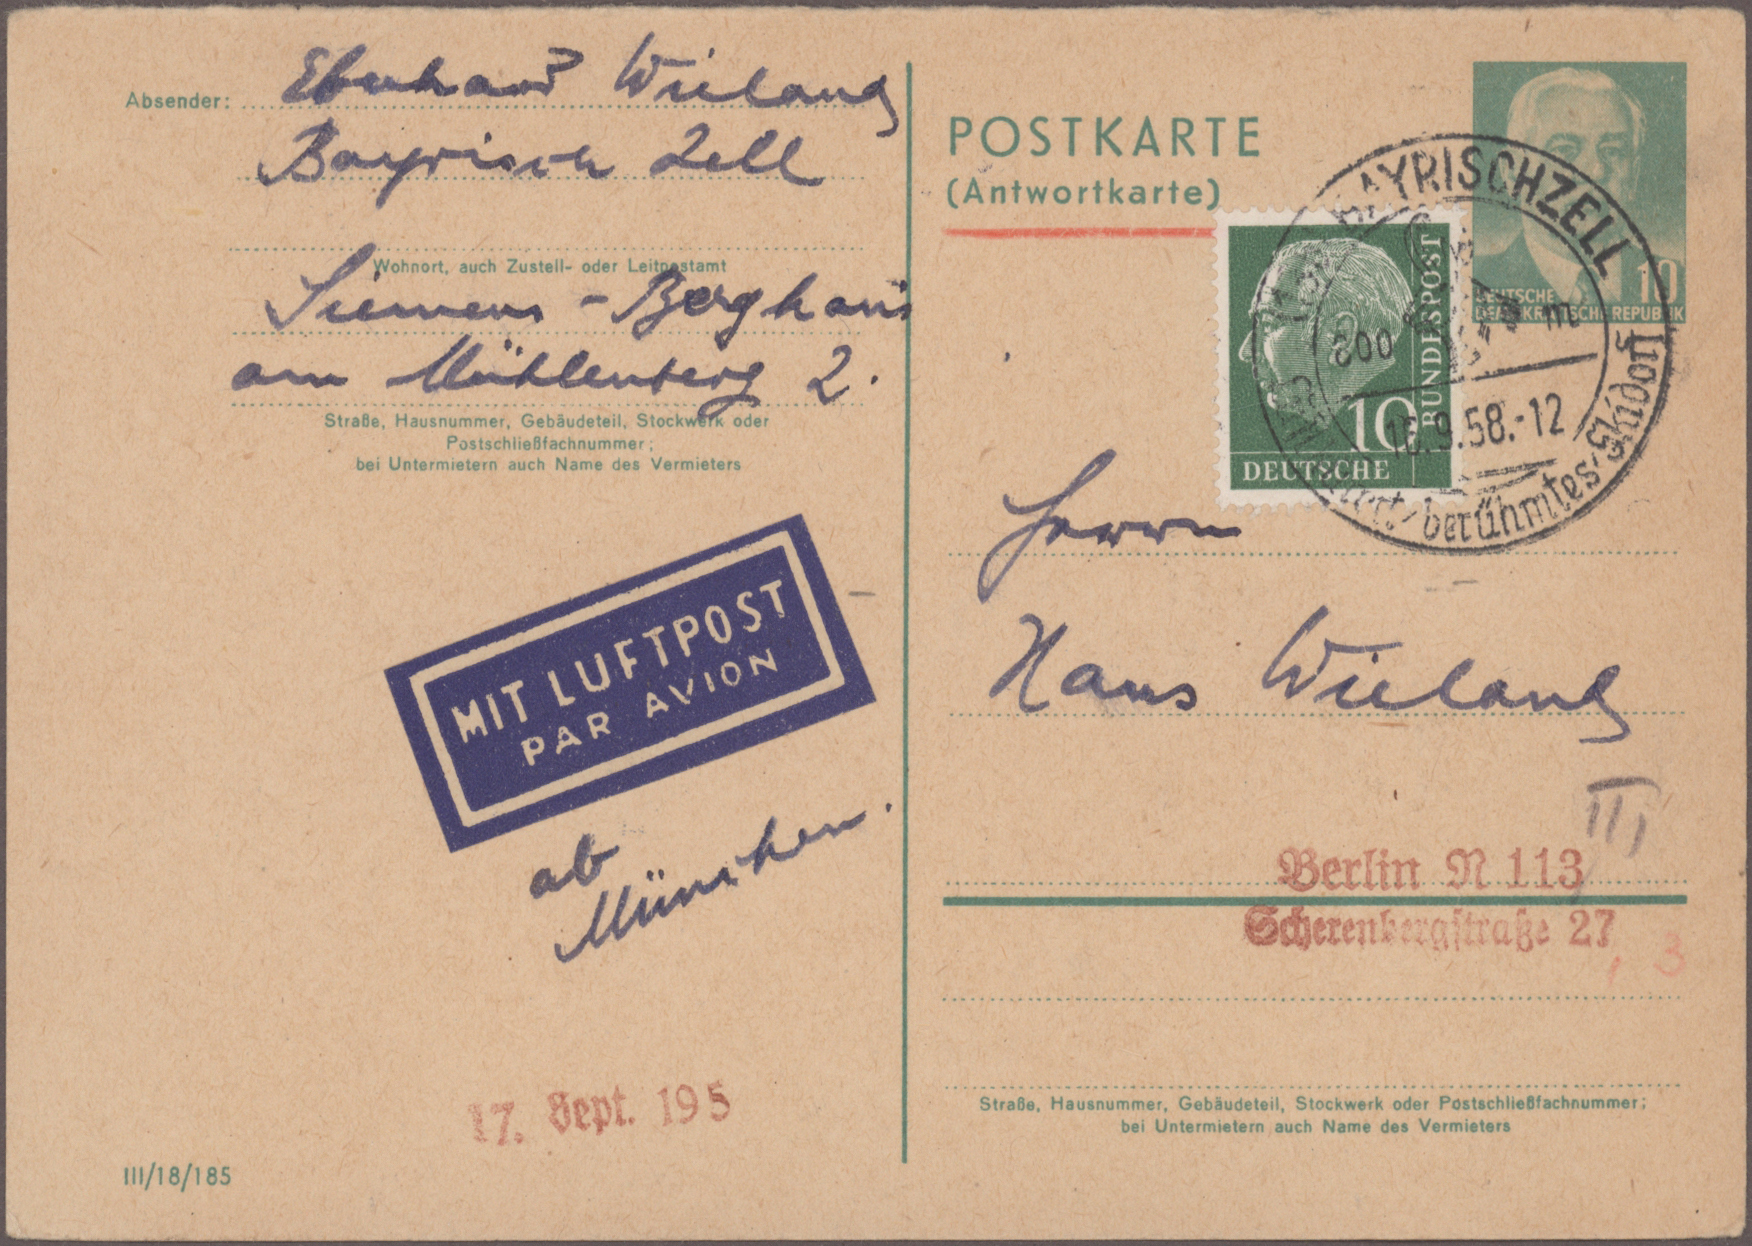 Absender: Eberhard Wieland
Bayrisch Zell
Wohnort, auch Zustell- oder Leitpostamt
Siemens-Berghaus
am Mühlenberg 2.
Straße, Hausnummer, Gebäudeteil, Stockwerk oder
Postschließfachnummer;
bei Untermietern auch Name des Vermieters
MIT LUFTPOST
PAR AVION
ab
München.
17. Sept. 195
III/18/185
POSTKARTE
(Antwortkarte)
10
DEUTSCHE
DEMOKRATISCHE REPUBLIK
10
DEUTSCHE
BUNDESPOST
BAYRISCHZELL
800 m
16.9.58.-12
berühmtes Skidorf
Herrn
Hans Wieland
III
Berlin N 113
Scherenbergstraße 27
3
Straße, Hausnummer, Gebäudeteil, Stockwerk oder Postschließfachnummer;
bei Untermietern auch Name des Vermieters